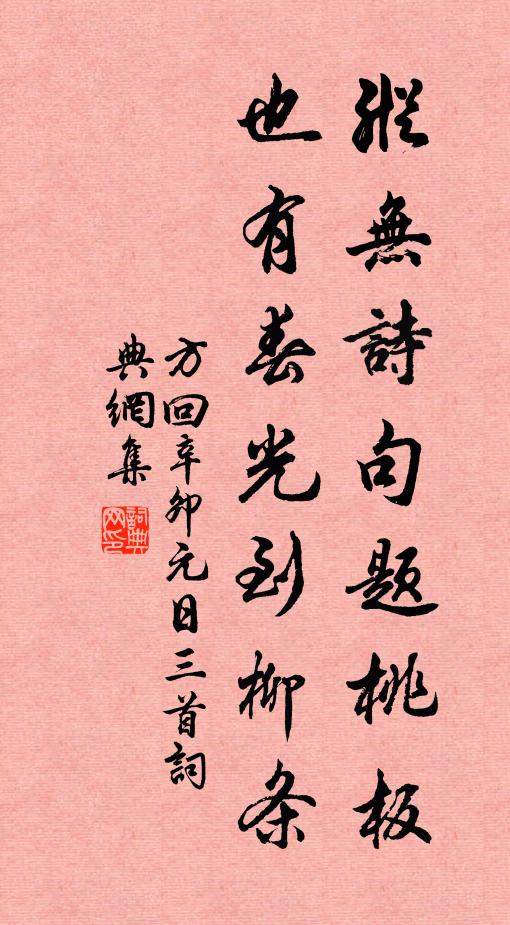 縱無詩句題桃板
也有春光到柳条
方回辛卯元日三首詞
典網集
詞典
网印